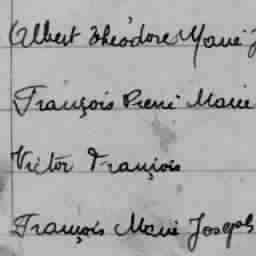 Albert Théodore Marie J
François Pierre Marie
Victor François
François Marie Joseph